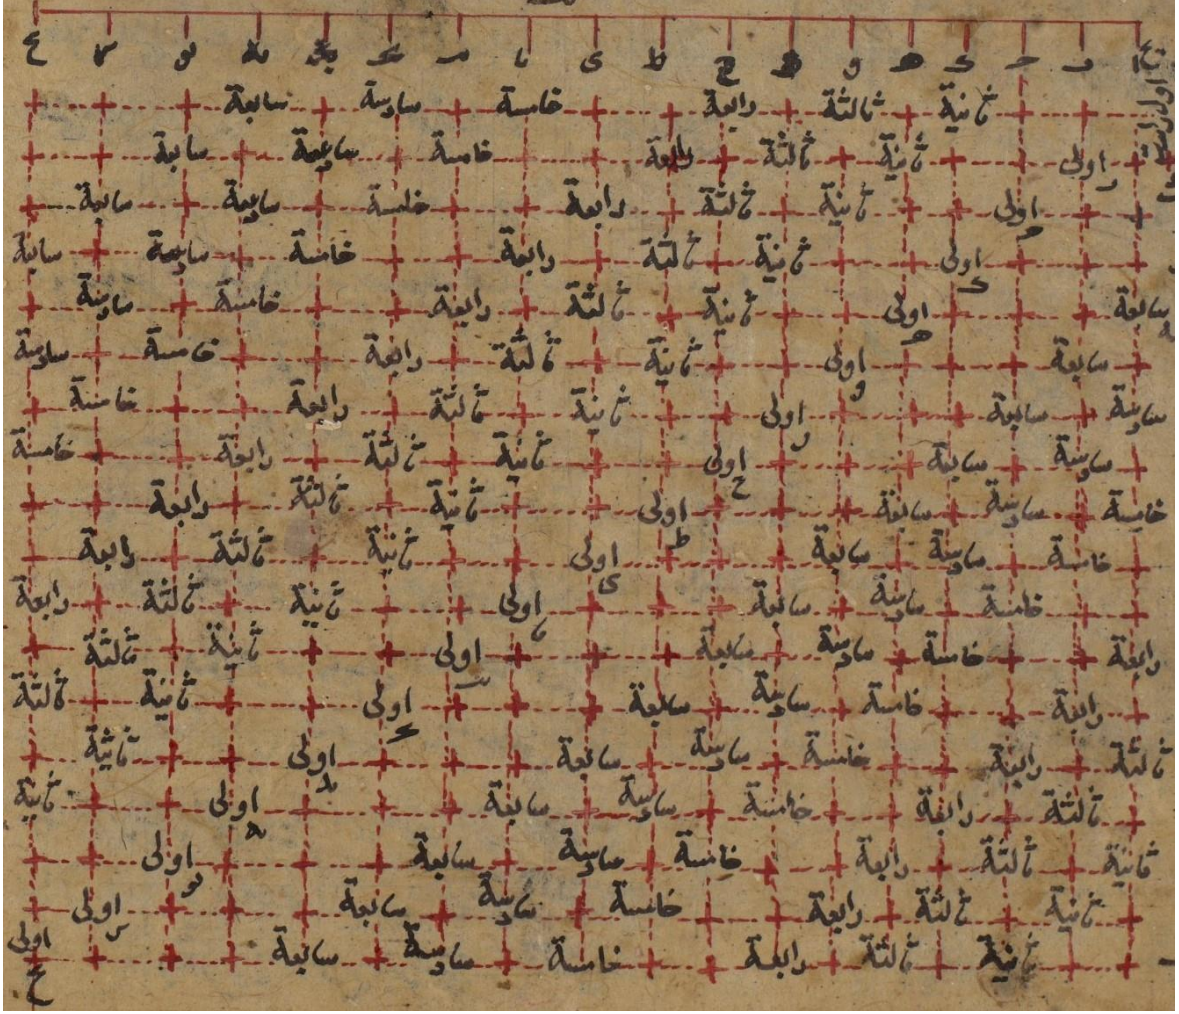 ا ب ج د ه و ز ح ط ى يا يب يج يد يه يو يز يح
اولى ثانية ثالثة رابعة خامسة سادسة سابعة
اولى ب ثانية ثالثة رابعة خامسة سادسة سابعة
اولى ج ثانية ثالثة رابعة خامسة سادسة سابعة
اولى د ثانية ثالثة رابعة خامسة سادسة سابعة
سابعة اولى ه ثانية ثالثة رابعة خامسة سادسة
سابعة اولى و ثانية ثالثة رابعة خامسة سادسة
سادسة سابعة اولى ز ثانية ثالثة رابعة خامسة
سادسة سابعة اولى ح ثانية ثالثة رابعة خامسة
خامسة سادسة سابعة اولى ط ثانية ثالثة رابعة
خامسة سادسة سابعة اولى ى ثانية ثالثة رابعة
خامسة سادسة سابعة اولى يا ثانية ثالثة رابعة
رابعة خامسة سادسة سابعة اولى يب ثانية ثالثة
رابعة خامسة سادسة سابعة اولى يج ثانية ثالثة
ثالثة رابعة خامسة سادسة سابعة اولى يد ثانية
ثالثة رابعة خامسة سادسة سابعة اولى يه ثانية
ثانية ثالثة رابعة خامسة سادسة سابعة اولى يو
ثانية ثالثة رابعة خامسة سادسة سابعة اولى يز
ثانية ثالثة رابعة خامسة سادسة سابعة اولى يح